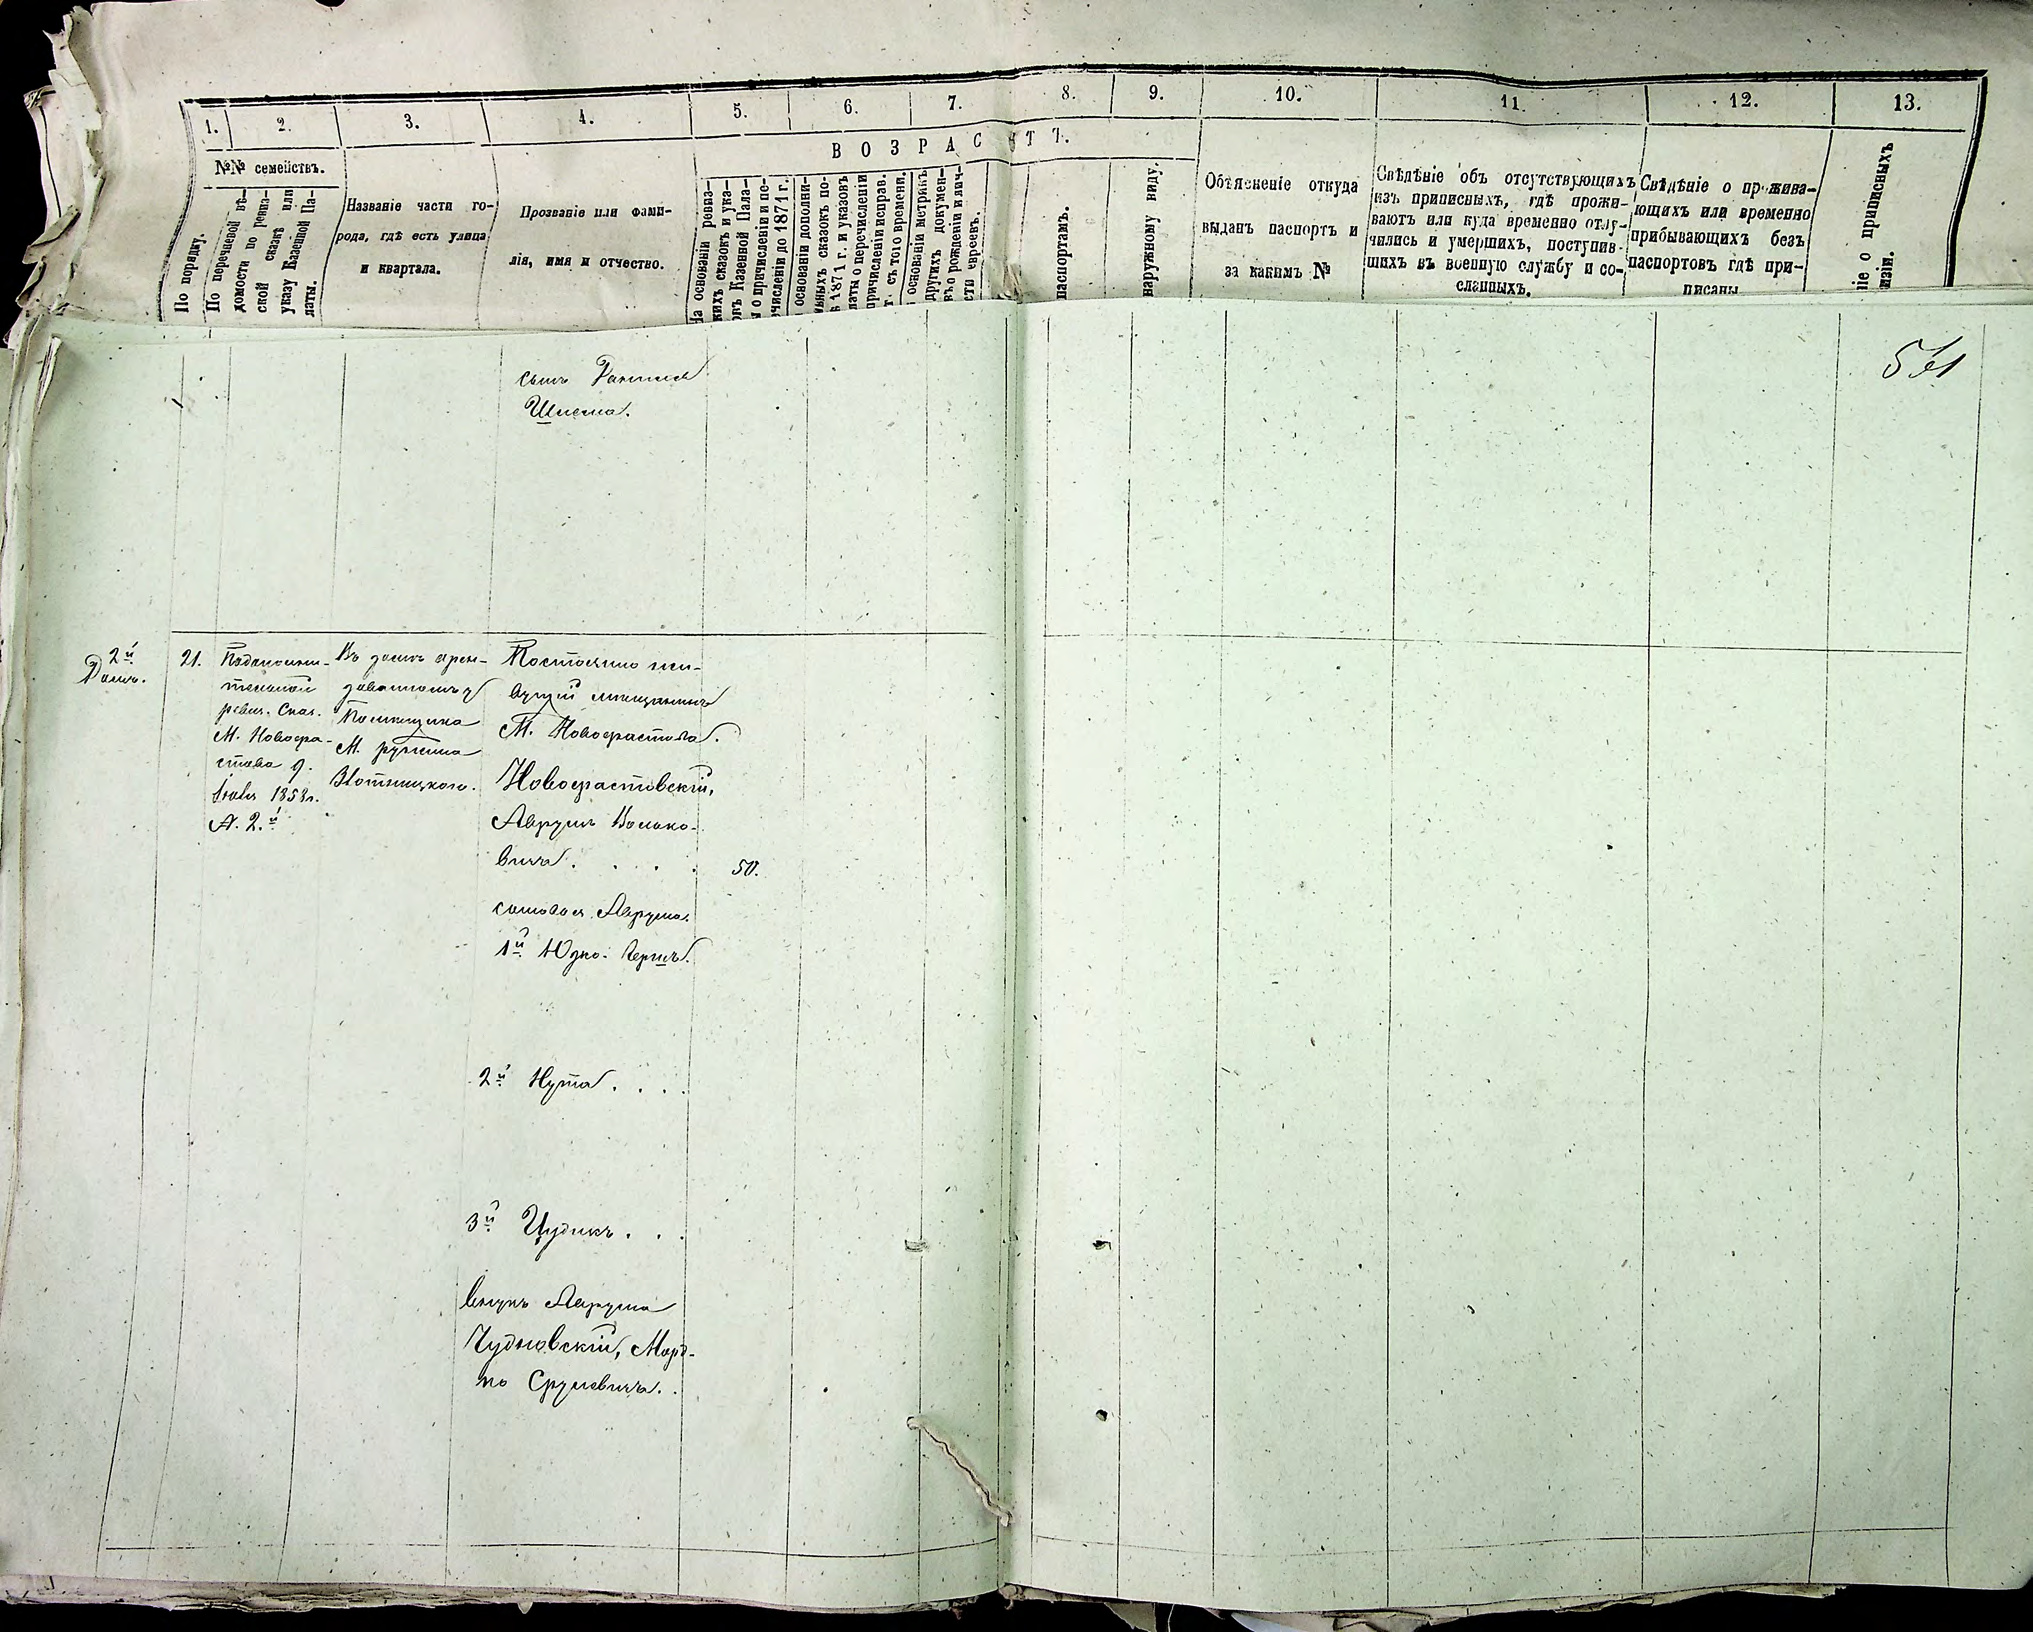 1. 2. 3. 4. 5. 6. 7. 8. 9. 10. 11. 12. 13.
ВОЗРАСТЪ.
№№ семействъ.
По порядку.
По перечневой вѣ-
домости по ревиз-
ской сказкѣ или
указу Казенной Па-
латы.
Названіе части го-
рода, гдѣ есть улица
и квартала.
Прозваніе или фами-
лія, имя и отчество.
На основаніи ревиз-
скихъ сказокъ и ука-
зовъ Казенной Пала-
ты о причисленіи и пе-
речисленіи до 1871 г.
основаніи дополни-
ныхъ сказокъ по-
1871 г. и указовъ
латы о перечисленіи
причисленіи исправ.
г. съ того времени.
основаніи метрикъ
другихъ докумен-
въ о рожденіи и лич-
сти евреевъ.
паспортамъ.
наружному виду.
Объясненіе откуда
выданъ паспортъ и
за какимъ №
Свѣдѣніе объ отсутствующихъ
изъ приписныхъ, гдѣ прожи-
ваютъ или куда временно отлу-
чились и умершихъ, поступив-
шихъ въ военную службу и со-
сланныхъ.
Свѣдѣніе о прожива-
ющихъ или временно
прибывающихъ безъ
паспортовъ гдѣ при-
писаны
ніе о приписныхъ
визіи.
сынъ
Шлема.
2й
Домъ.
21.
Дополни-
тельной
ревиз. Сказ.
М. Новофа-
стова 9.
Іюля 1858 г.
№ 2й
Въ домѣ арен-
дованномъ у
Помещика
М. Ружина
Злотницкого.
Постоянно жи-
вущій мещанинъ
М. Новофастова.
Новофастовскій,
Аврумъ Волько-
вичъ. . . . . 50.
сыновья Аврума.
1й Юдко-Гершъ.
2й Нута . . . .
3й Цудикъ . . .
внукъ Аврума
Чудновскій, Морд-
ко Срулевичъ. .